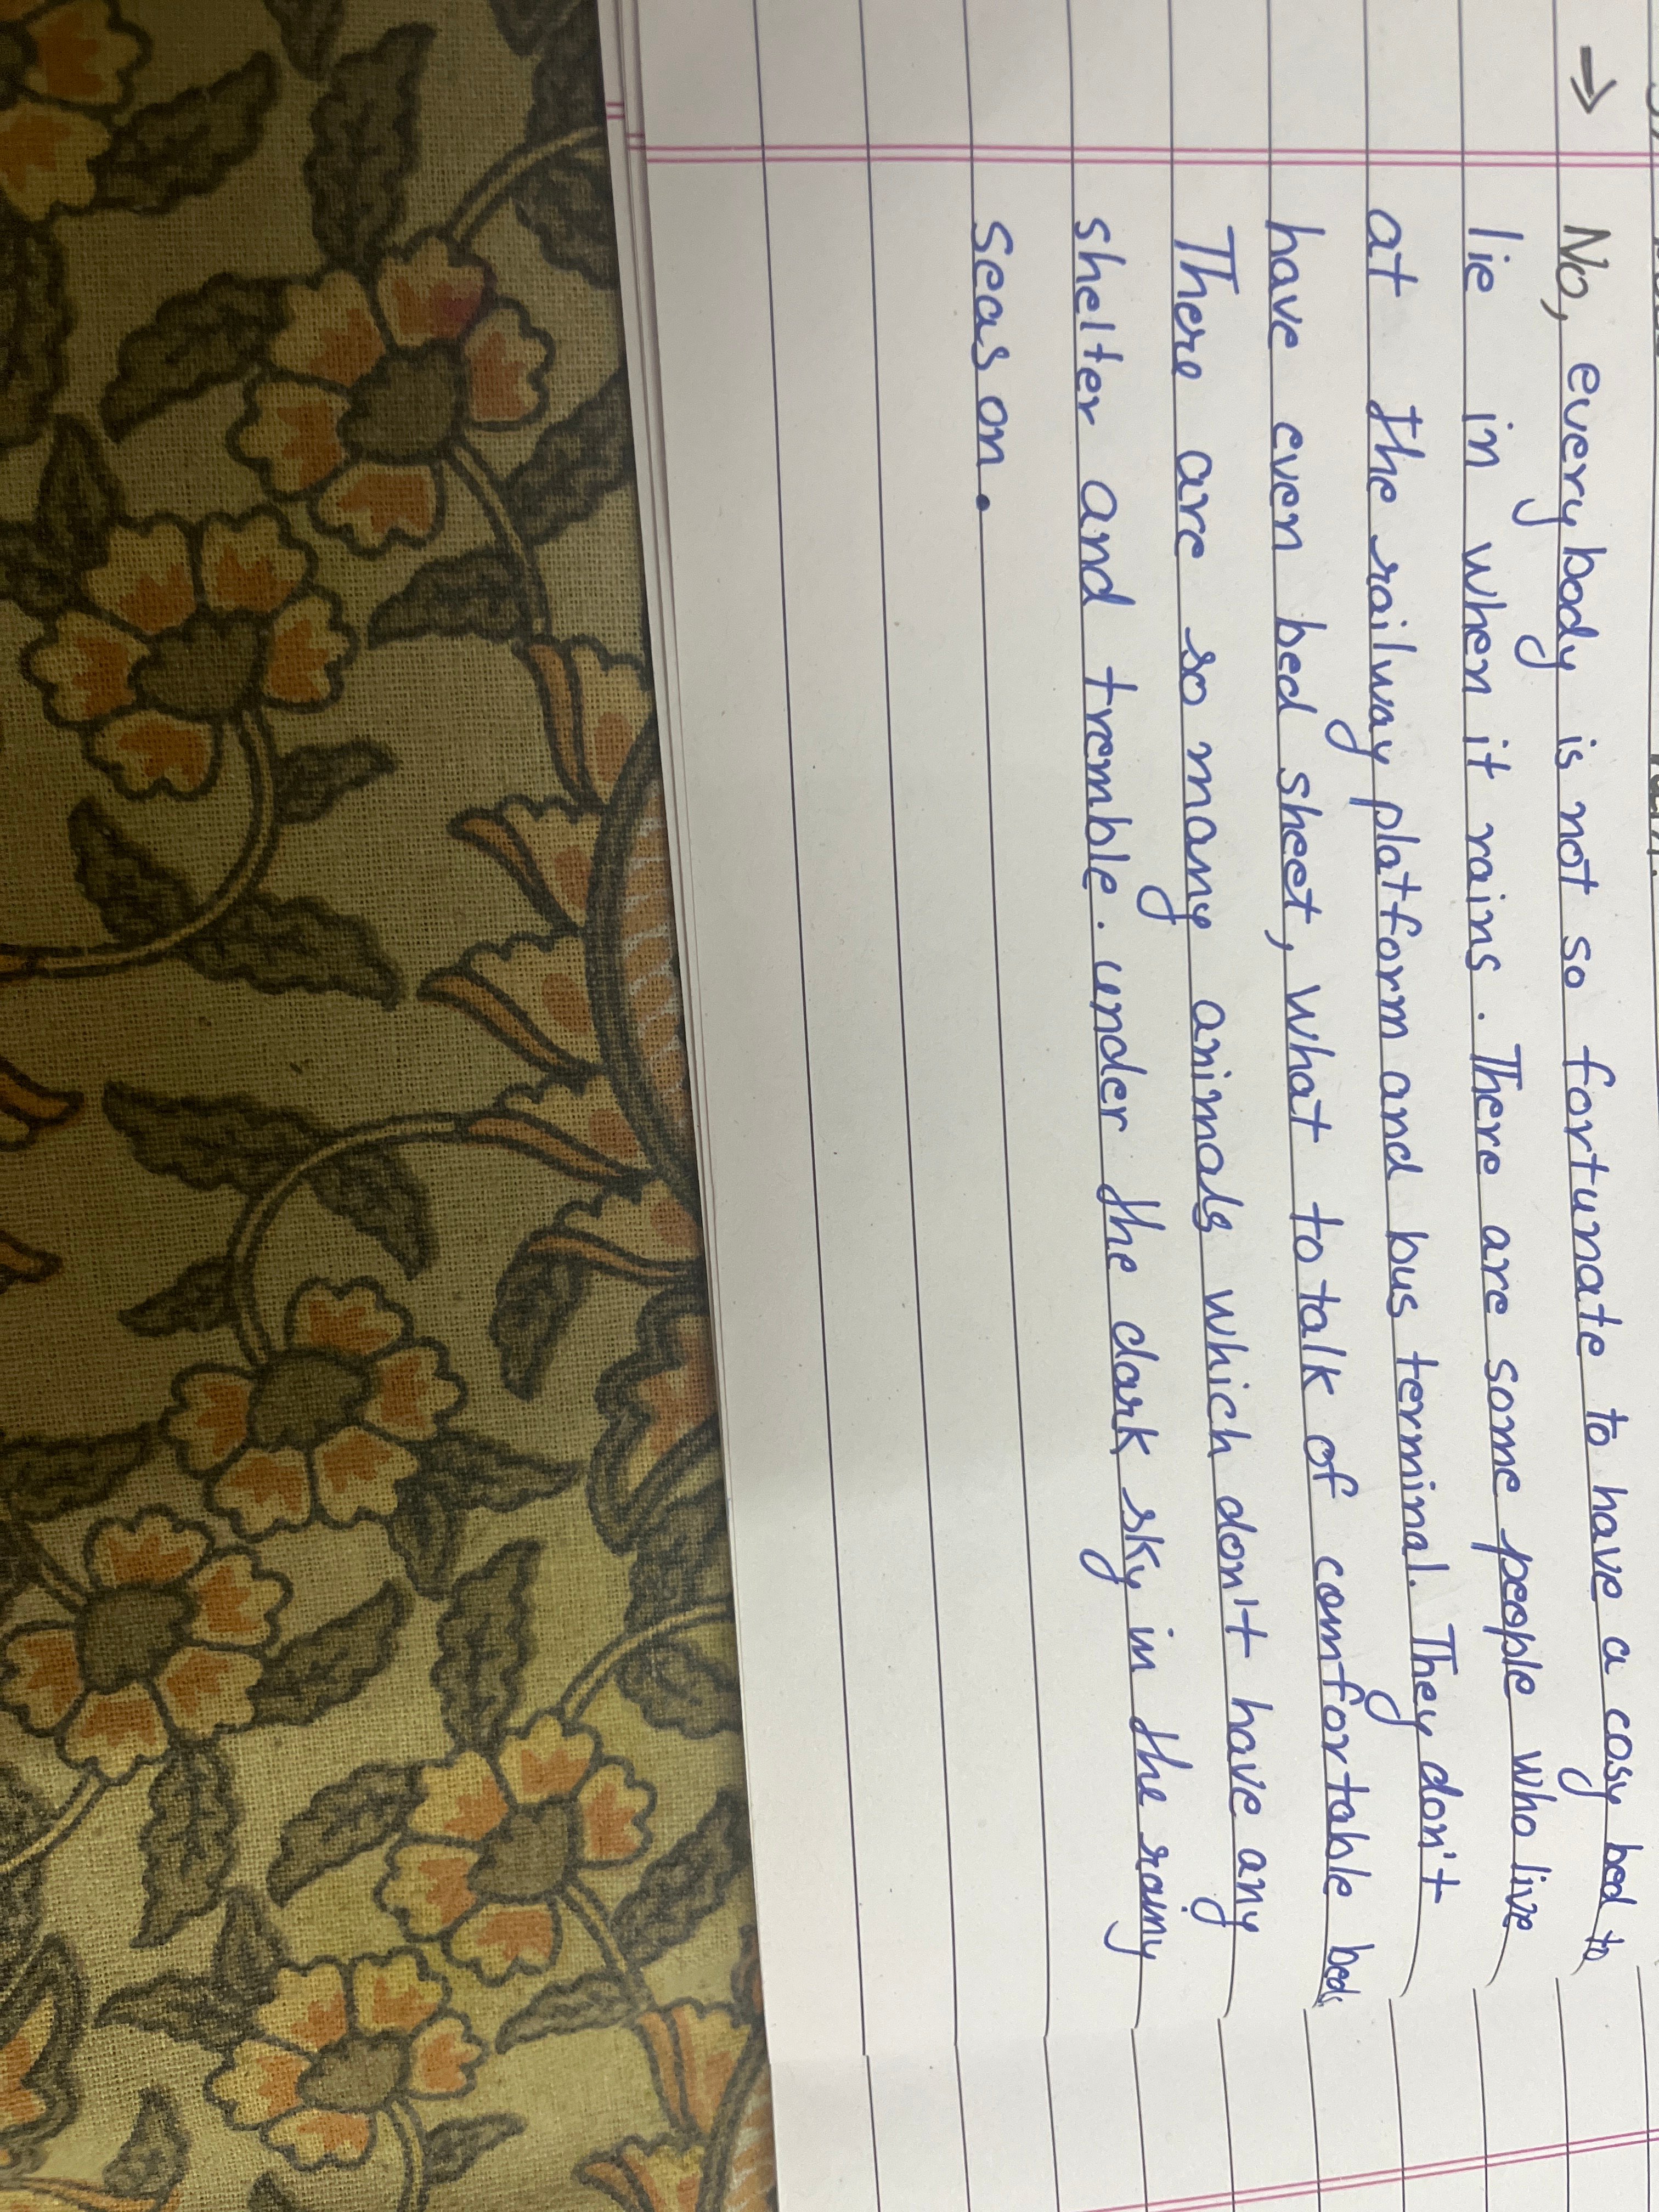 → No, everybody is not so fortunate to have a cosy bed to
lie in when it rains. There are some people who live
at the railway platform and bus terminal. They don't
have even bed sheet, what to talk of comfortable beds
There are so many animals which don't have any
shelter and tremble. under the dark sky in the rainy
season.